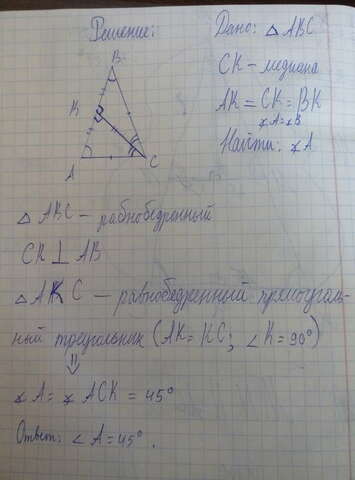 Решение:
Дано: △ ABC
CK – медиана
AK = CK = BK
∡A=∡B
Найти: ∡A
B
K
A
C
△ ABC – равнобедренный
CK ⊥ AB
△ AKC – равнобедренный прямоуголь-
ный треугольник (AK = KC; ∠K = 90°)
⇓
∡A = ∡ACK = 45°
Ответ: ∠A = 45°.